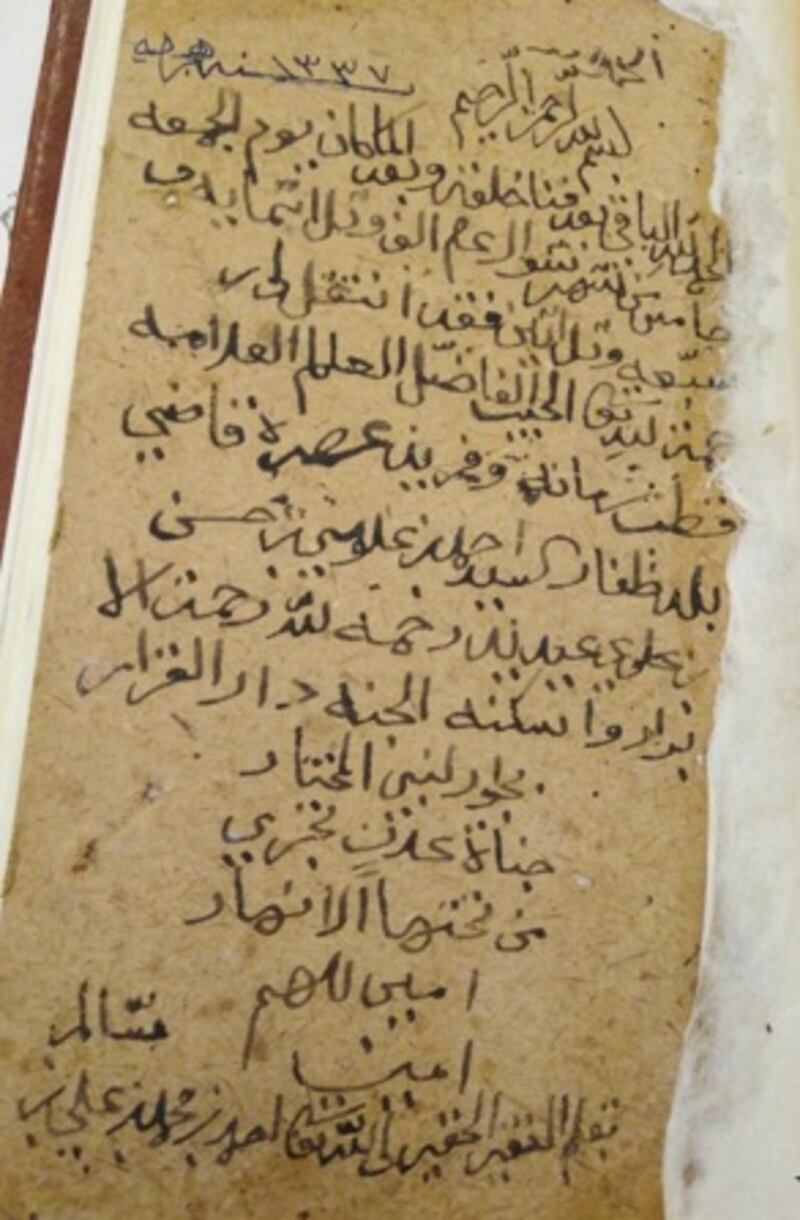 ١٣٣٧ سنه هجريه
بسم الله الرحمن الرحيم
الحمد لله الباقي بعد فنا خلقه وبعد لما كان يوم الجمعه
خامس من شهر شوال عام الف وثلاثمايه
سبعه وثلاثين فقد انتقل
رحمة الله تعا الحبيب الفاضل العلم العلامه
قطب زمانه وفريد عصره قاضي
بلد ظفار السيد احمد بن علوي بن حسن
بن علوي عيديد رحمه الله رحمة الا
برار وا سكنه الجنه دار القرار
بجوار لنبي المختار
جناة عدن تجري
من تحتها الانهار
امين للهم
امين
بقلم الفقير الحقير الى الله تعا احمد بن محمد بن علي بن
سالم